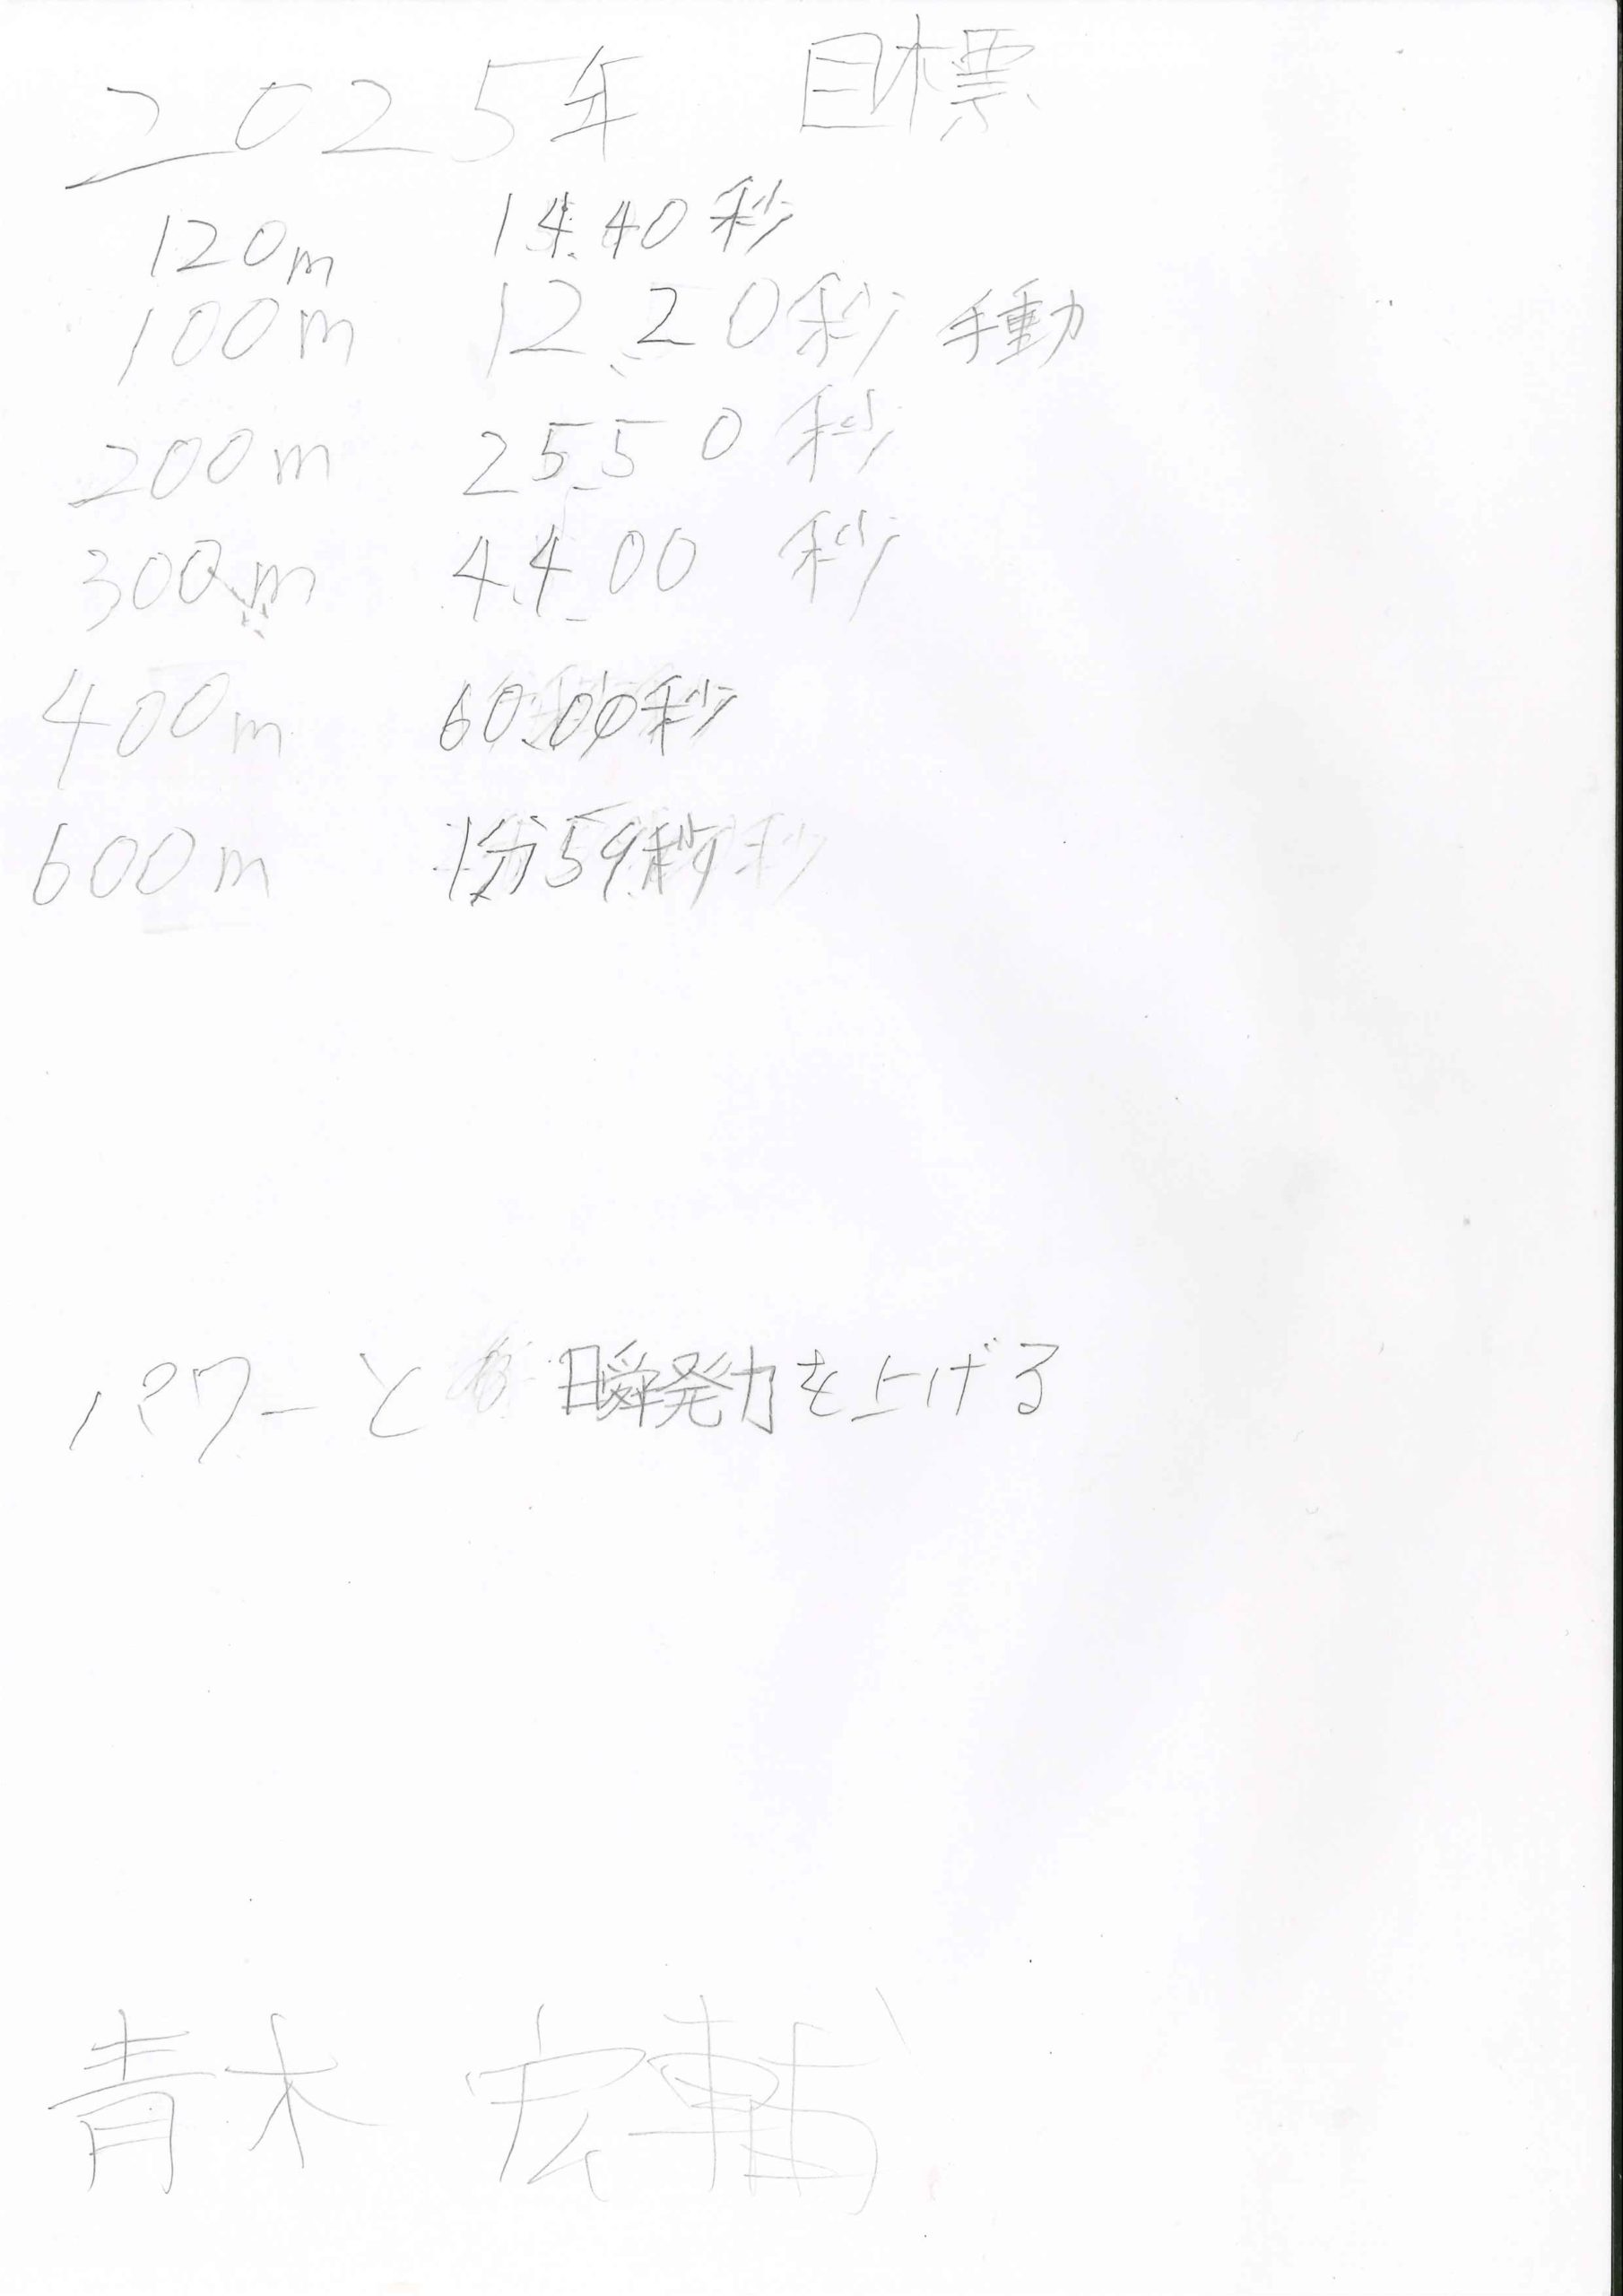 2025年 目標
120m 14.40秒
100m 12.20秒 手動
200m 25.50秒
300m 44.00秒
400m 60.00秒
600m 1分59秒
パワーと 瞬発力を上げる
青木 宏輔